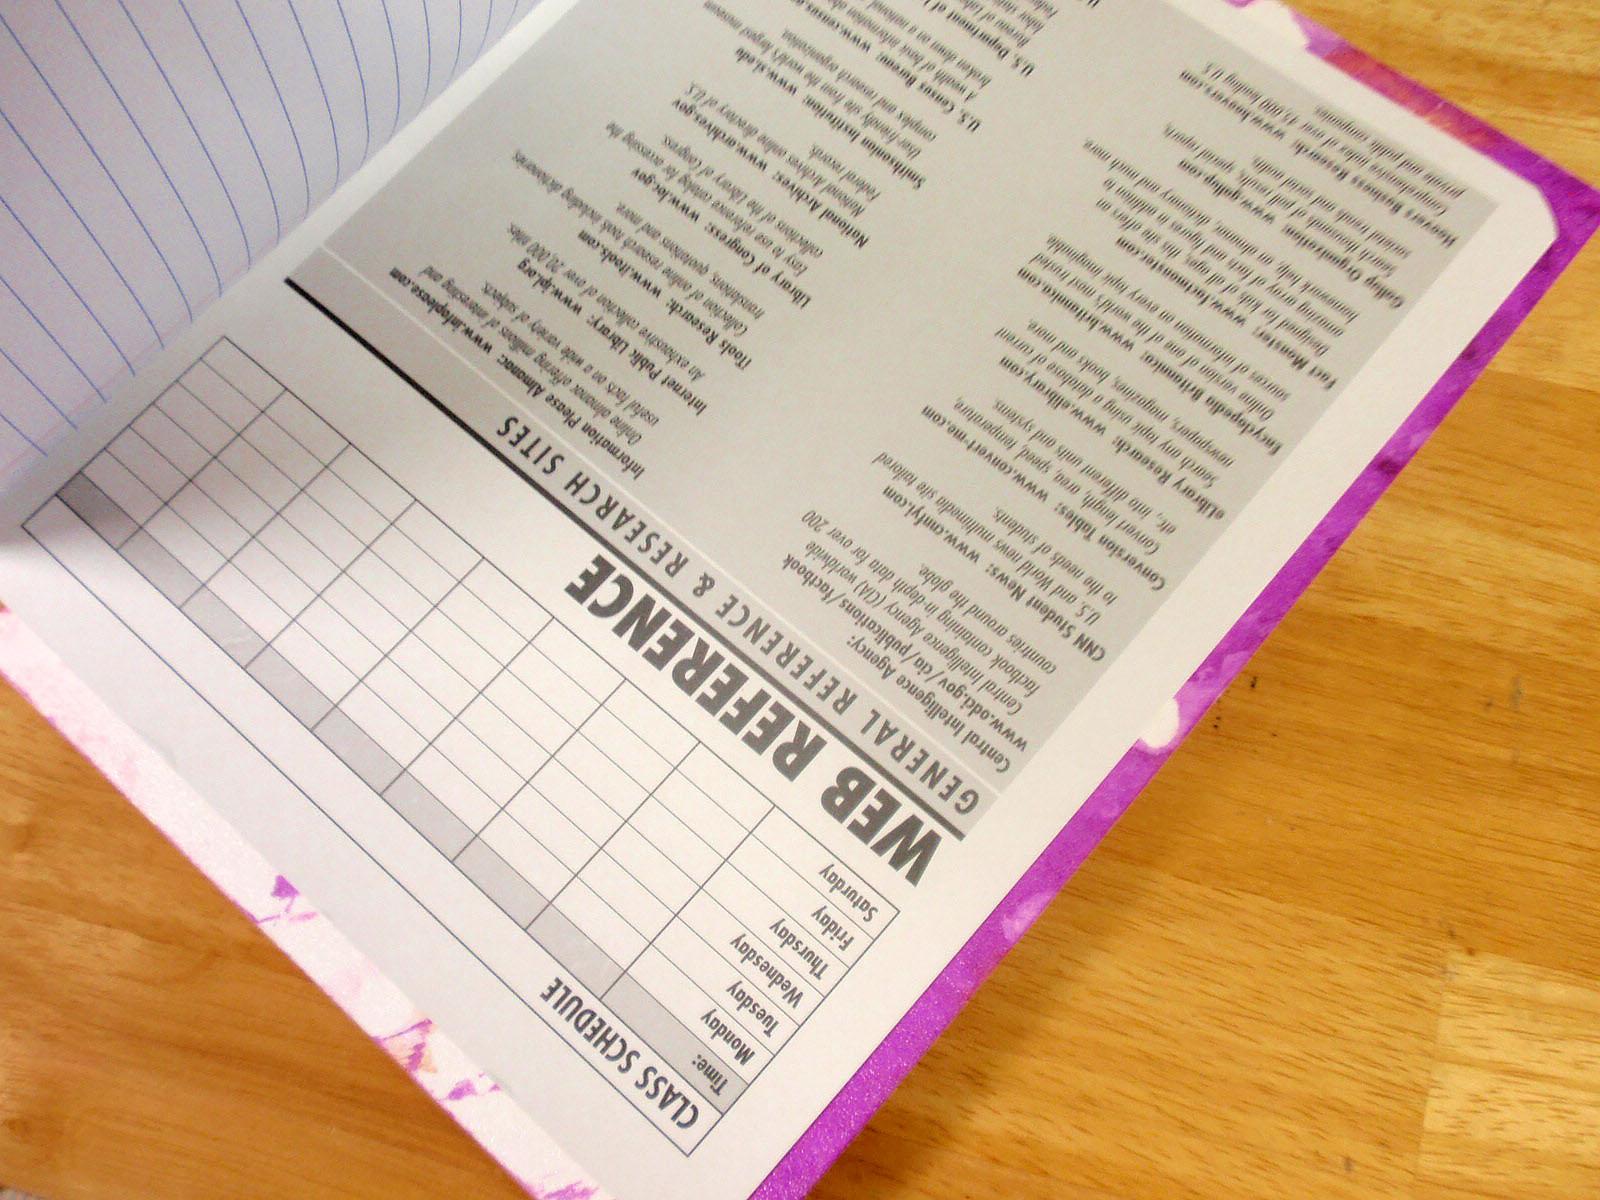 CLASS SCHEDULE
Time:
Monday
Tuesday
Wednesday
Thursday
Friday
Saturday
WEB REFERENCE
GENERAL REFERENCE & RESEARCH SITES
Central Intelligence Agency:
www.odci.gov/cia/publications/factbook
Central Intelligence Agency (CIA) worldwide
factbook containing in-depth data for over 200
countries around the globe.
CNN Student News: www.cnnfyi.com
U.S. and World news multimedia site tailored
to the needs of students.
Conversion Tables: www.convert-me.com
Convert length, area, speed, temperature,
etc., into different units and systems.
eLibrary Research: www.elibrary.com
Search any topic using a database of current
newspapers, magazines, books and more.
Encyclopedia Britannica: www.britannica.com
Online version of one of the world's most trusted
sources of information on every topic imaginable.
Fact Monster: www.factmonster.com
Designed for kids of all ages, this site offers an
amazing array of facts and figures in addition to
homework help, an almanac, dictionary and much more.
Gallup Organization: www.gallup.com
Search thousands of poll results, special reports,
societal trends and social audits.
Hoovers Business Research: www.hoovers.com
Comprehensive index of over 45,000 leading U.S.
private and public companies.
Information Please Almanac: www.infoplease.com
Online almanac offering millions of interesting and
useful facts on a wide variety of subjects.
Internet Public Library: www.ipl.org
An exhaustive collection of over 20,000 titles.
iTools Research: www.itools.com
Collection of online research tools including dictionaries,
translations, quotations and more.
Library of Congress: www.loc.gov
Easy to use reference catalog for accessing the
collections of the Library of Congress.
National Archives: www.archives.gov
National Archives online directory of U.S.
Federal records.
Smithsonian Institution: www.si.edu
User-friendly site from the world's largest museum
complex and research organization.
U.S. Census Bureau: www.census.gov
A wealth of basic information
broken down on a national
U.S. Department of